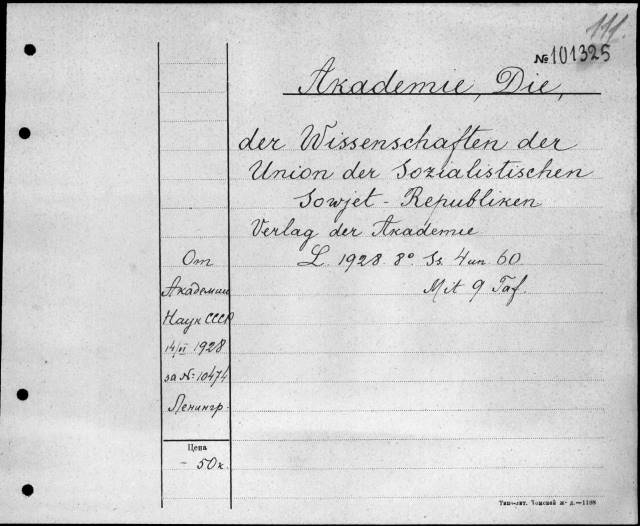 № 101325
Akademie, Die,
der Wissenschaften der
Union der Sozialistischen
Sowjet - Republiken
Verlag der Akademie
L. 1928. 8° Ss. 4 un 60
Mit 9 Taf.
От
Академии
Наук СССР
14/VI 1928
за №: 10474
Ленингр.
Цена
- 50к.
Типо-лит. Томской ж. д.—1198